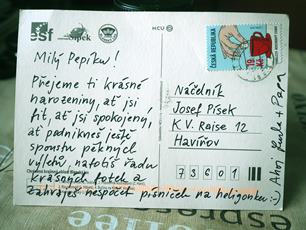 ssf
Šípek
HCU
ČESKÁ REPUBLIKA
Milý Pepíku!
Přejeme ti krásné
narozeniny, ať jsi
fit, ať jsi spokojený,
ať podnikneš ještě
spoustu pěkných
výletů, nafotíš řadu
krásných fotek a
zahraješ nespočet písniček na heligonku :-)
Ahoj
Načelník
Josef Písek
K.V. Raise 12
Havířov
73601